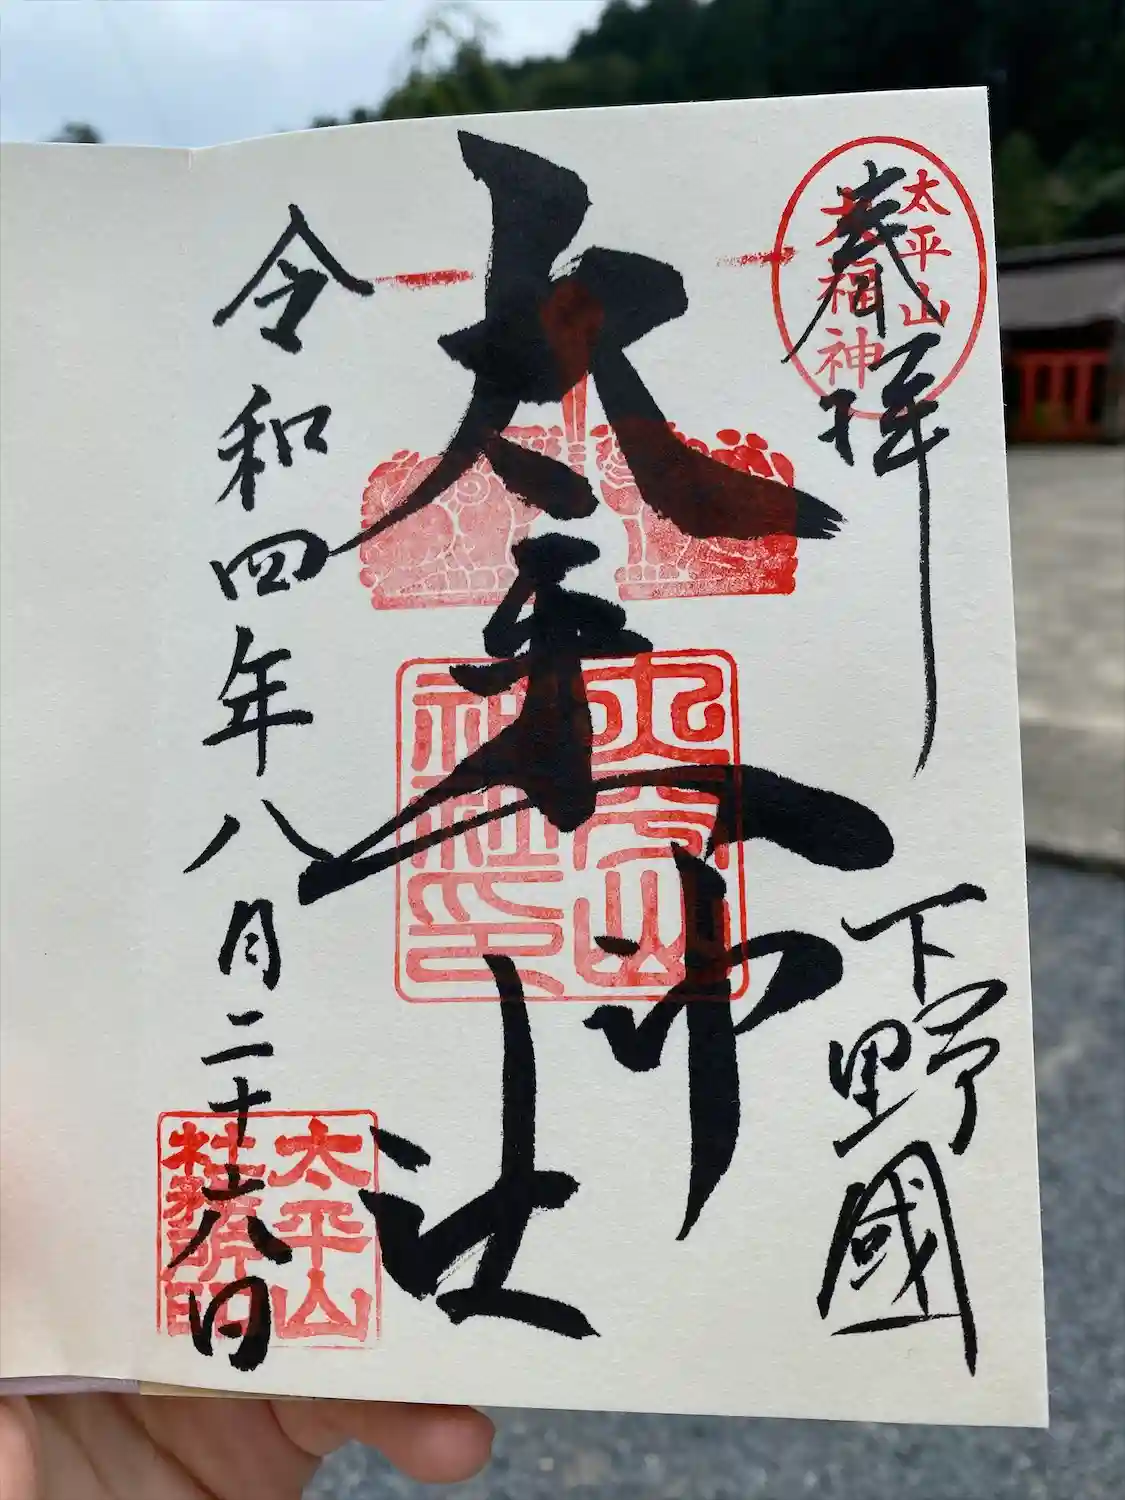 奉拝
下野國
太平山
福神
太平山神社
太平山神社印
太平山
令和四年八月二十六日